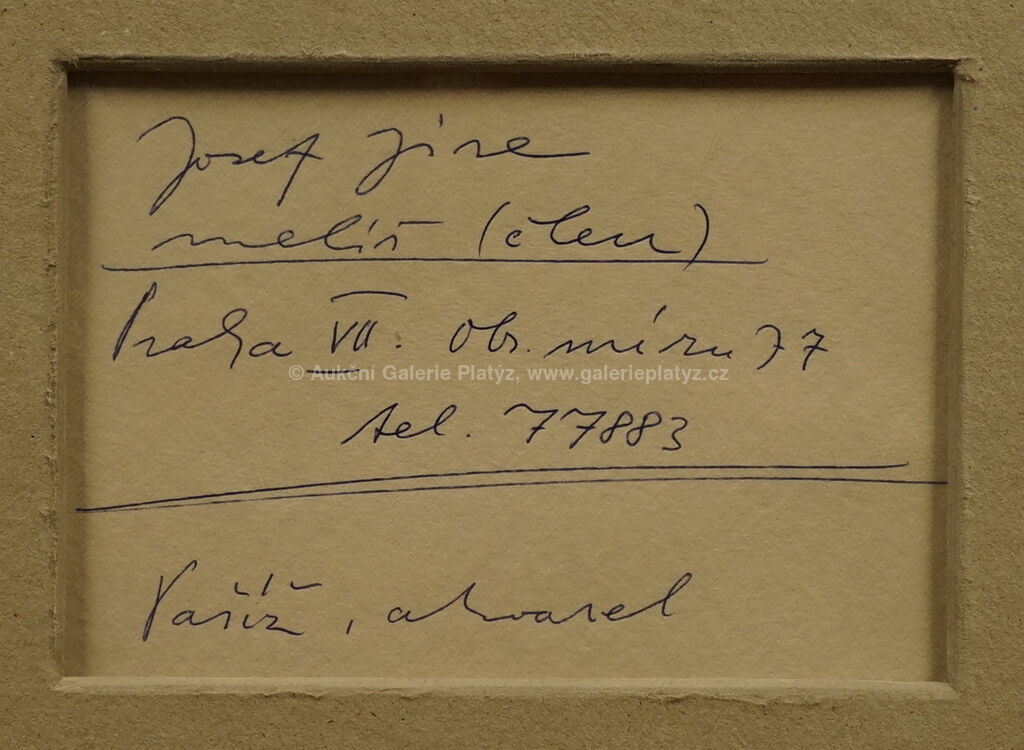 Josef Jíra
malíř (člen)
Praha VII. Obr. míru 77
© Aukční Galerie Platýz, www.galerieplatyz.cz
tel. 77883
Paříž, akvarel